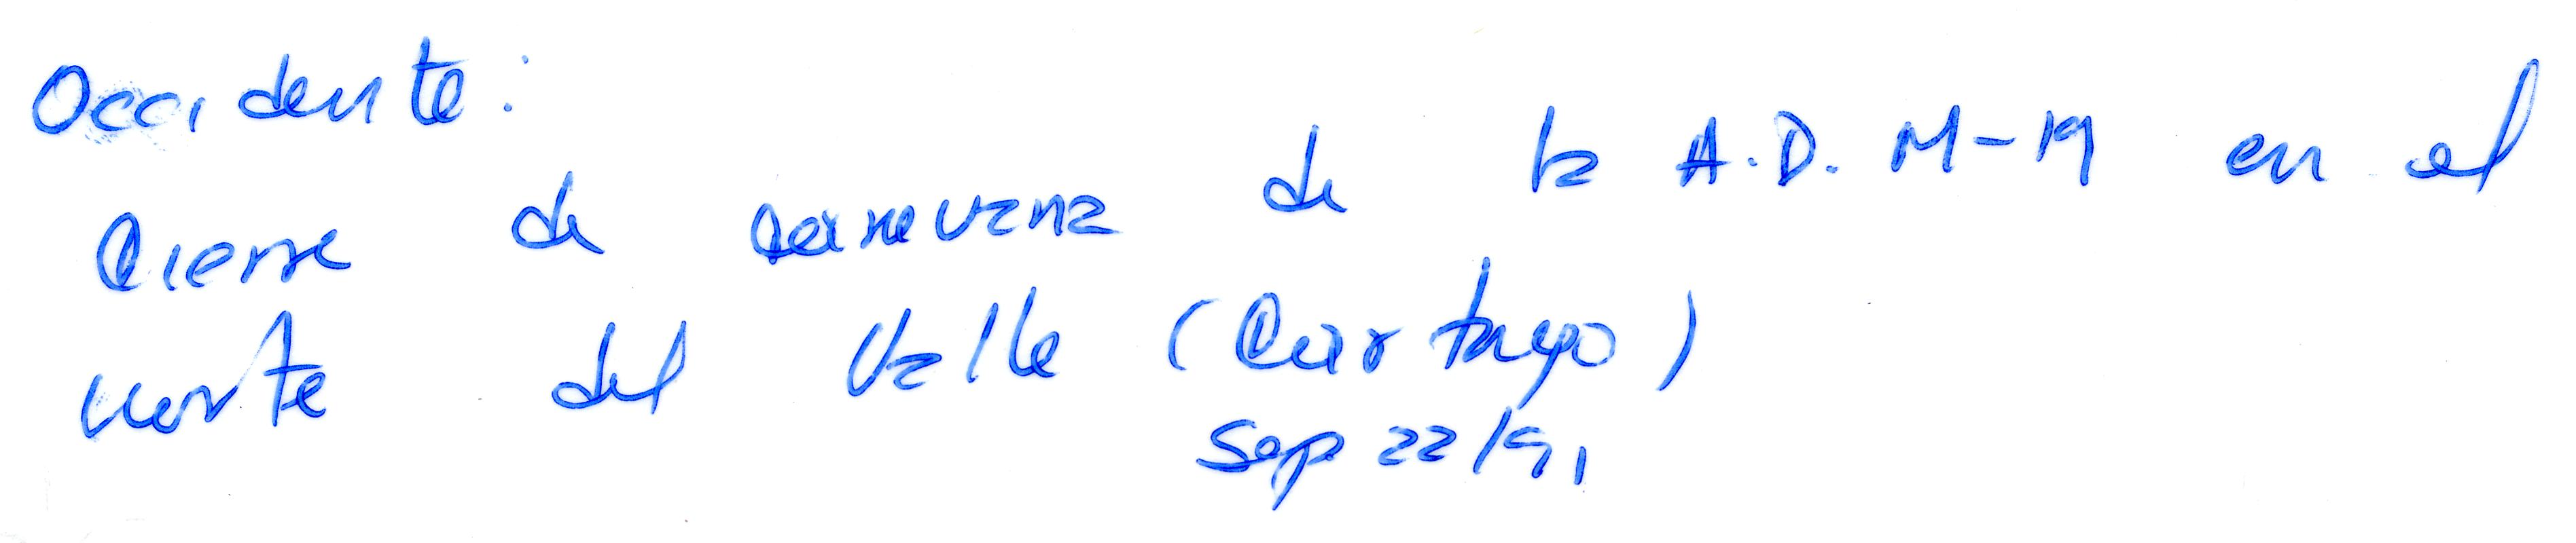 Occidente:
Cierre de caravana de la A.D. M-19 en el
norte del Valle (Cartago)
Sep 22/91